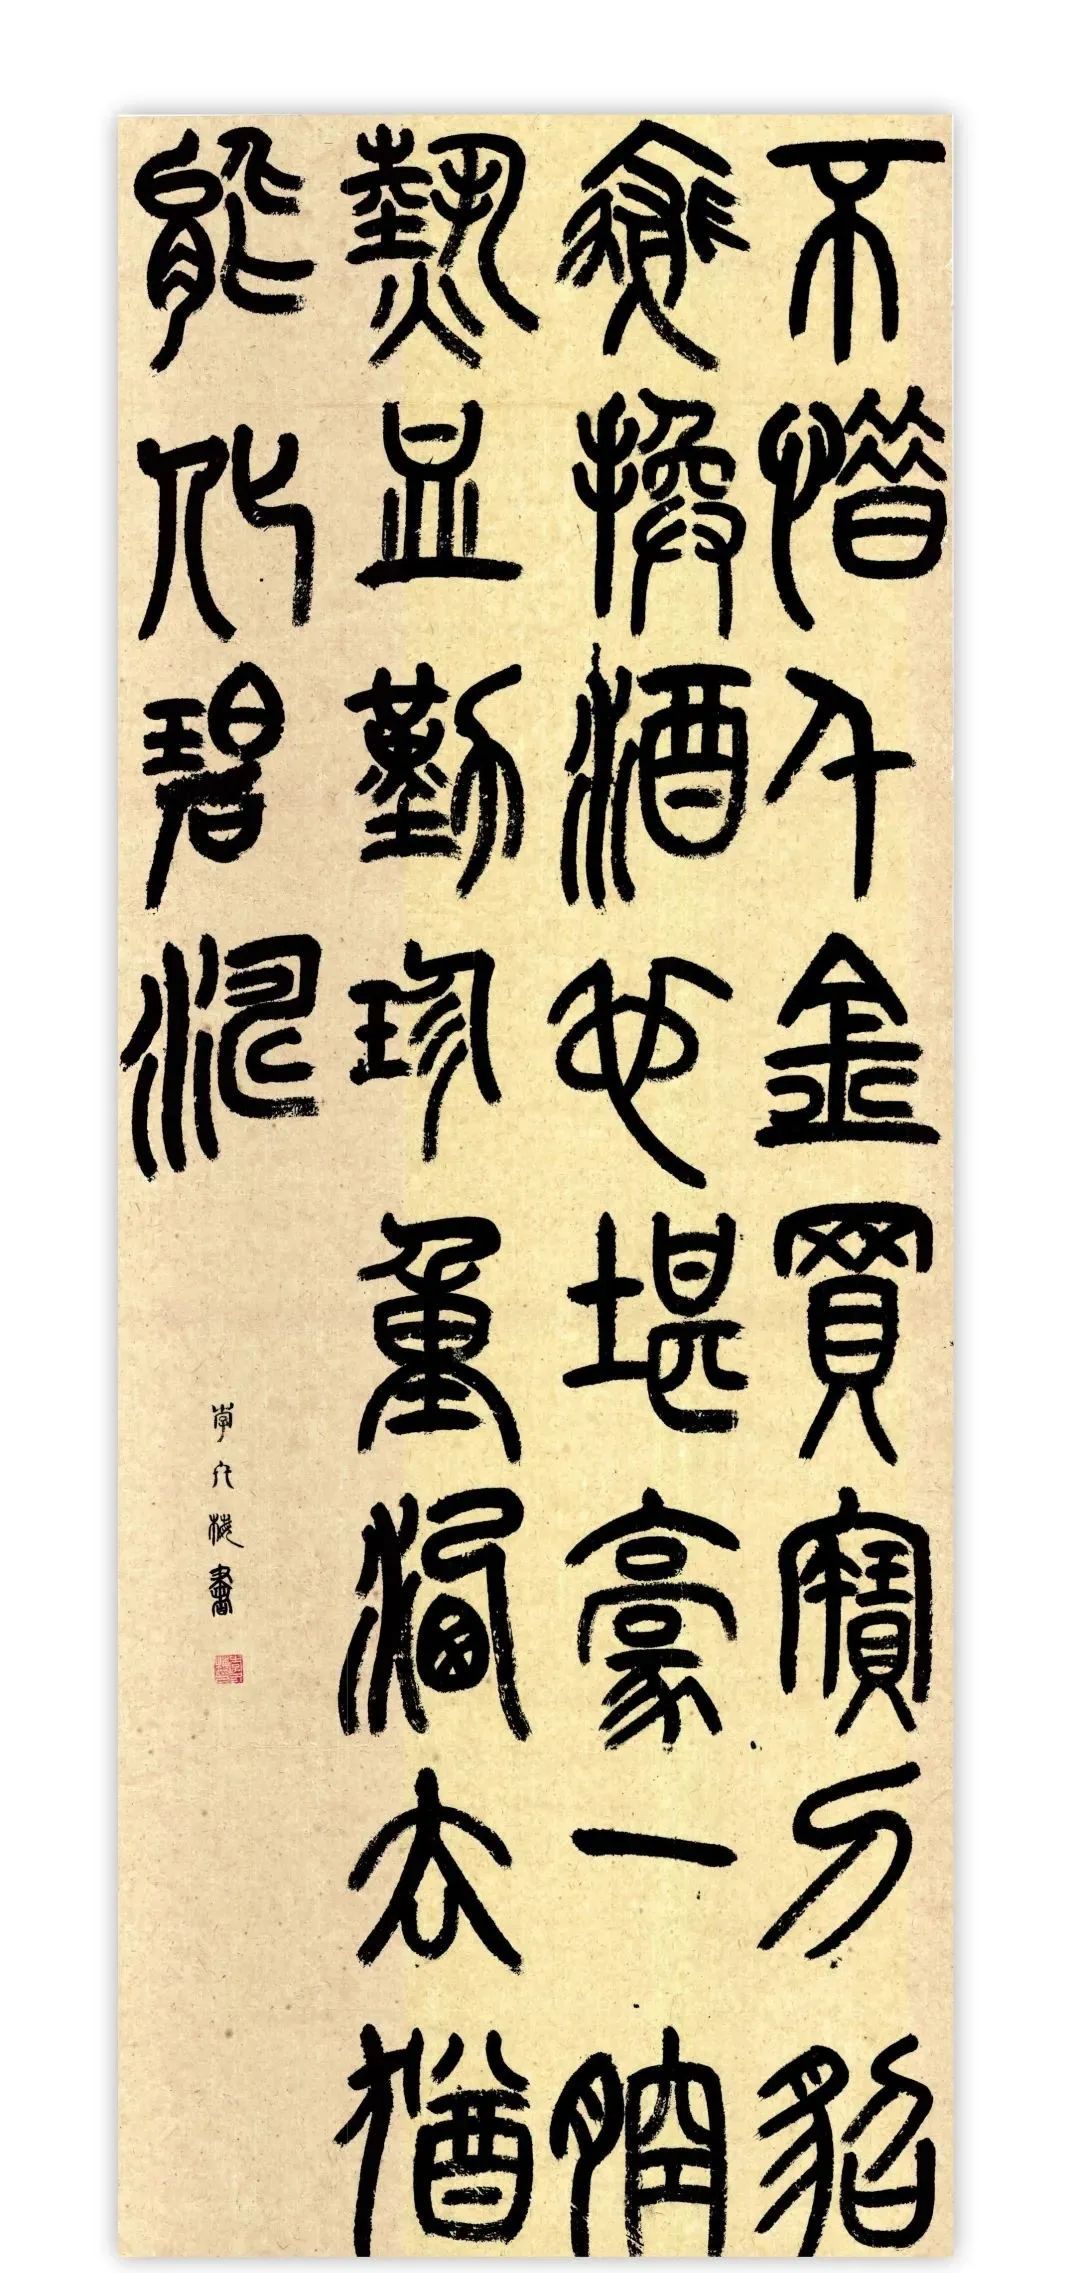 不惜千金買寶刀貂
裘換酒也堪豪一腔
熱血勤珍重灑去猶
能化碧濤
梅書